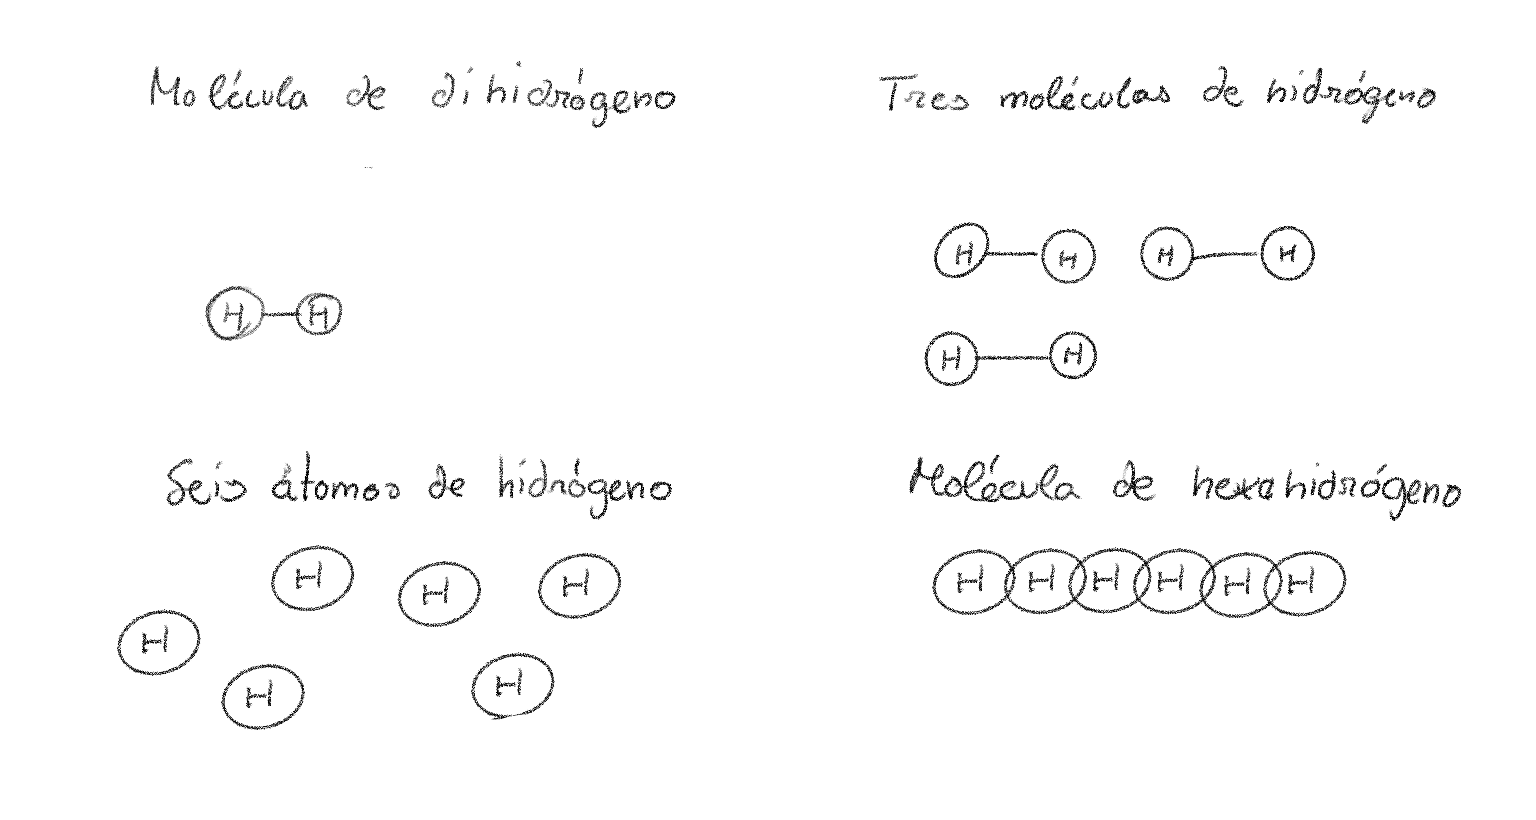 Molécula de dihidrógeno
Tres moléculas de hidrógeno
H H
H H H H
H H
Seis átomos de hidrógeno
Molécula de hexahidrógeno
H H H H H H
H H H H H H